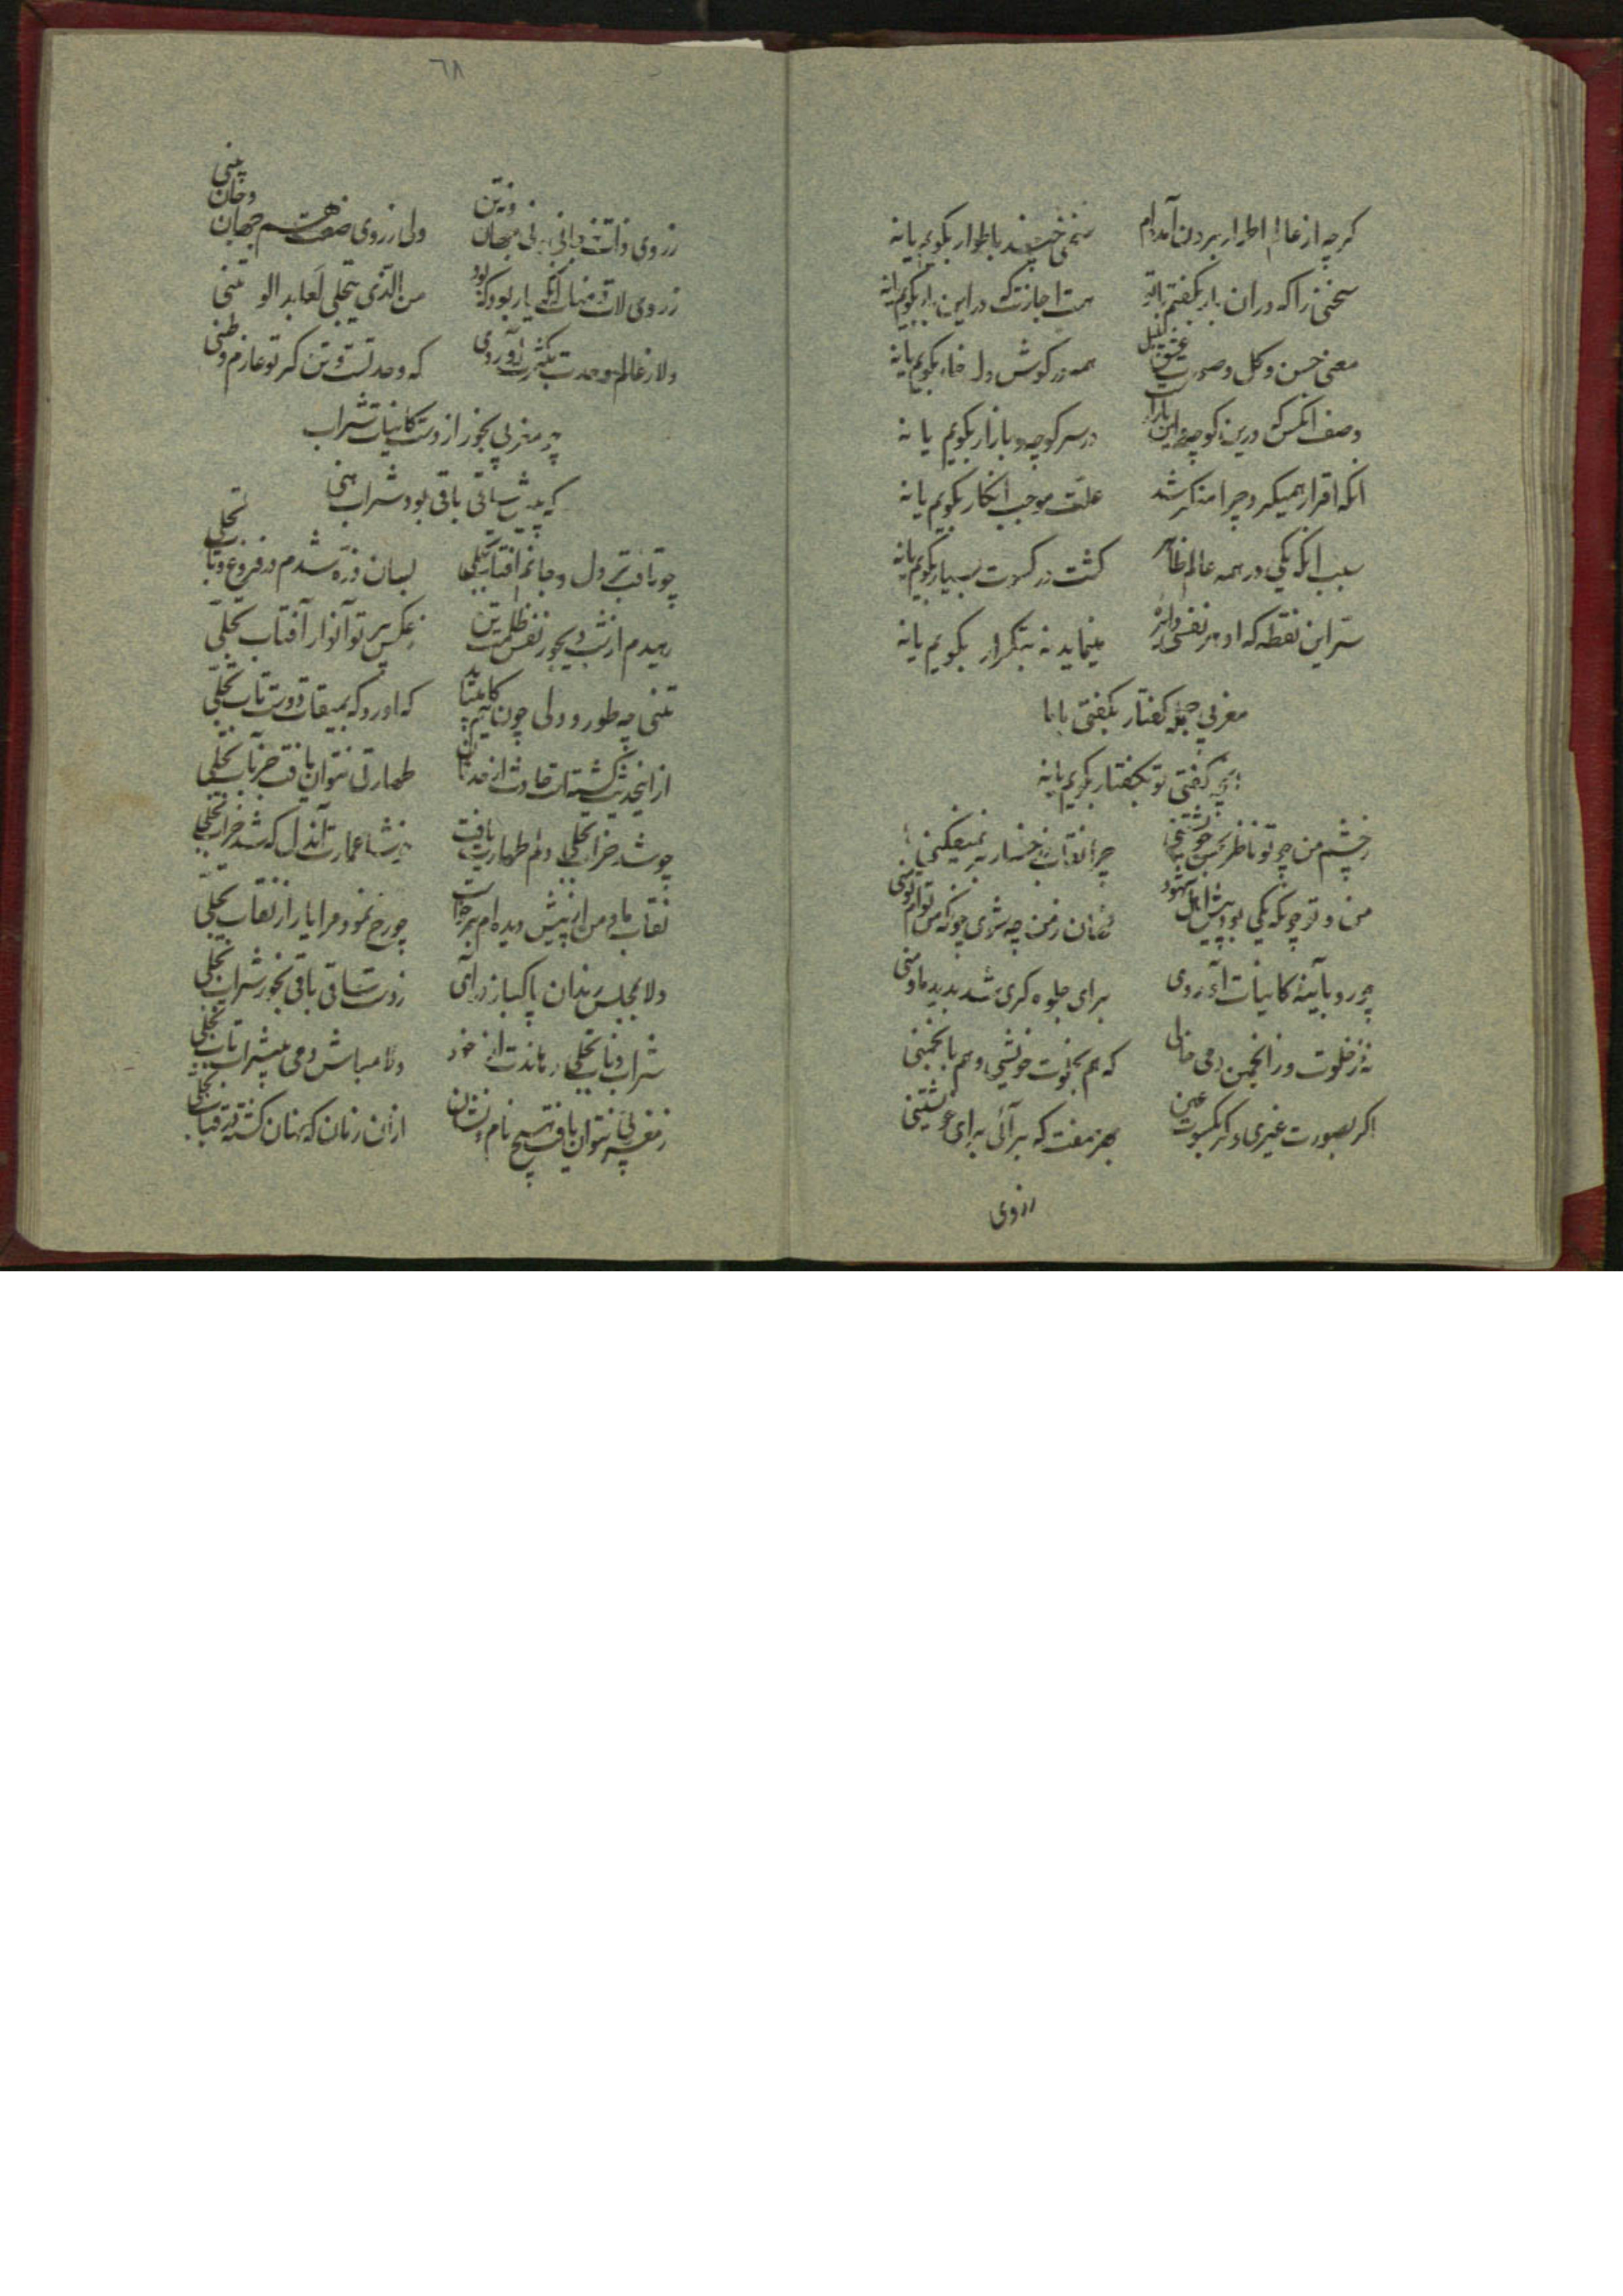 گرچه از عالم اطوار برون آمده‌ام سخنی چند باطوار بگویم یا نه
سخنی را که در آن بار بگفتم با تو هست اجازت که در این بار بگویم یا نه
معنی حسن و گل و صورت عشق بلبل همه در گوش دل خار بگویم یا نه
وصف آنکس که درین کوچه و این بازار در سر کوچه و بازار بگویم یا نه
آنکه اقرار همیکرد چرا منکر شد علت موجب انکار بگویم یا نه
سبب آنکه یکی در همه عالم ظاهر گشت در کسوت بسیار بگویم یا نه
سر این نقطه که او هر نفسی دایره مینماید نه بتکرار بگویم یا نه
مغربی جمله گفتار بگفتی یا نا
بگفتار بگویم یا نه
ز چشم من چو تو ناظر بحسن خویشتنی چرا نقاب ز رخسار بر نمیفکنی
من و تو چونکه یکی بود پیش اهل شهود نهان ز من چه شوی چونکه من توام تو منی
چو رو بآینهٔ کاینات آوردی برای جلوه گری شد پدید ما و منی
نه ز خلوت و ز انجمن دمی خالی که هم بخلوت خویشی و هم بانجمنی
اگر بصورت غیری و گر بکسوت عین بهر صفت که برآئی برای خویشتنی
ز روی
٦٨
ز روی ذات نه جانی نه جهان و نه تن ولی ز روی صفت هم جهان و جان و تنی
ز روی لات و منات آنکه یار بود که بود من الذی یتجلی لعابد الوثنی
دلا ز عالم وحدت بکثرت آوردی که وحدتست وطن گر تو عازم وطنی
چو مغربی بخور از دست کاینات شراب
که پیش ساقی باقی بود شراب هنی
چو تافت بر دل و جانم آفتاب تجلی بسان ذره شدم در فروغ و تاب تجلی
رهیدم از شب دیجور نفس ظلمت تن ز عکس پرتو انوار آفتاب تجلی
تنی چه طور و دلی چون کلیم که آورد که بمیقات دوست تاب تجلی
طهارتی نتوان یافت جز بآب تجلی
چو شد خراب تجلی دلم طهارت یافت عمارت آندل که شد خراب تجلی
نقاب ما و من از پیش دیده‌ام برخاست چو رخ نمود مرا یار از نقاب تجلی
دلا بمجلس رندان پاکباز در آی ز دست ساقی باقی بخور شراب تجلی
شراب ناب تجلی رهاندت از خود دلا مباش دمی بیشراب ناب تجلی
ز مغربی نتوان یافت هیچ نام و نشان از آن زمان که نهان گشت در قباب تجلی